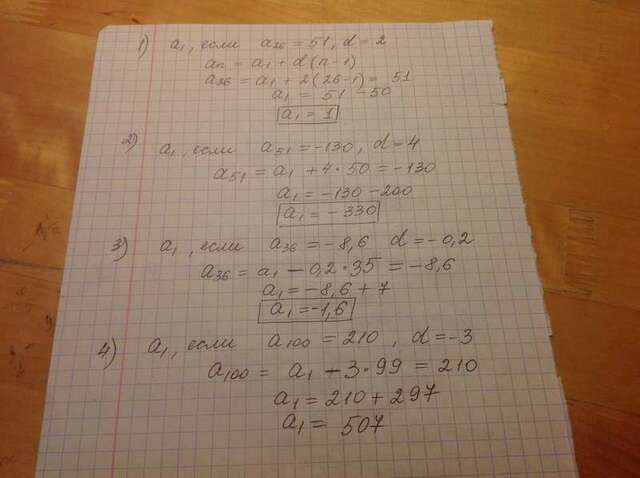 1) a₁, если a₂₆ = 51, d = 2
aₙ = a₁ + d(n-1)
a₂₆ = a₁ + 2(26-1) = 51
a₁ = 51 - 50
a₁ = 1
2) a₁, если a₅₁ = -130, d = 4
a₅₁ = a₁ + 4·50 = -130
a₁ = -130 - 200
a₁ = -330
3) a₁, если a₃₆ = -8,6 d = -0,2
a₃₆ = a₁ - 0,2·35 = -8,6
a₁ = -8,6 + 7
a₁ = -1,6
4) a₁, если a₁₀₀ = 210, d = -3
a₁₀₀ = a₁ - 3·99 = 210
a₁ = 210 + 297
a₁ = 507